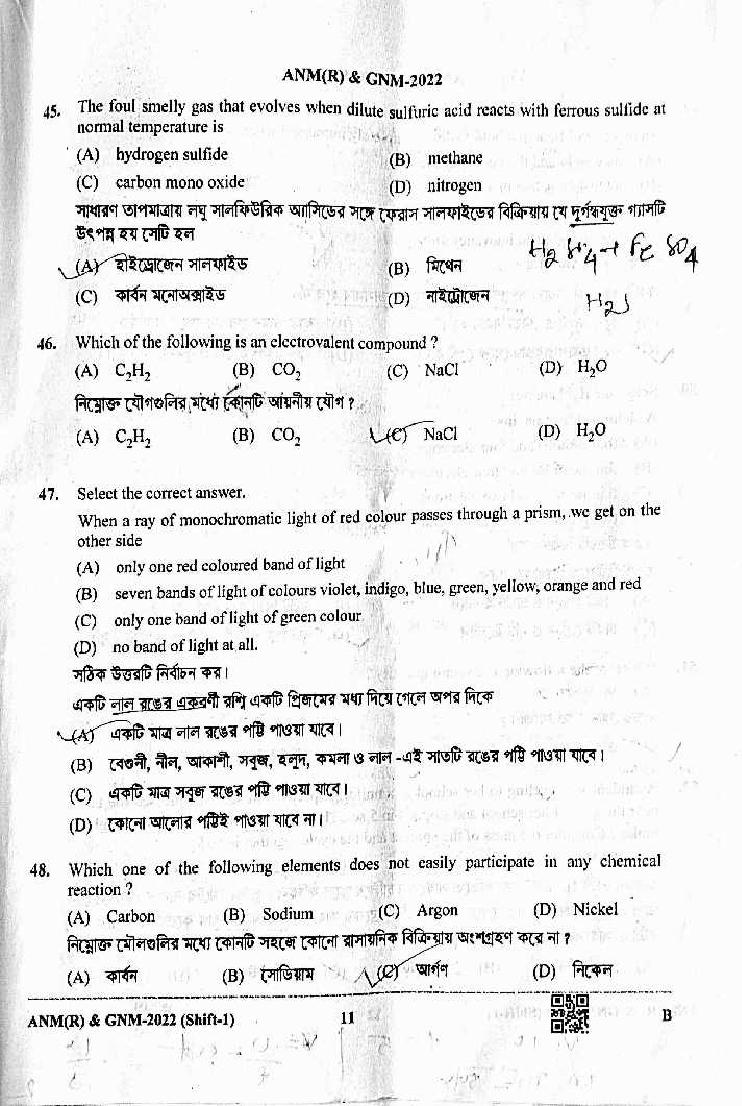 ANM(R) & GNM-2022
45. The foul smelly gas that evolves when dilute sulfuric acid reacts with ferrous sulfide at
normal temperature is
(A) hydrogen sulfide (B) methane
(C) carbon mono oxide (D) nitrogen
সাধারণ তাপমাত্রায় লঘু সালফিউরিক অ্যাসিডের সঙ্গে ফেরাস সালফাইডের বিক্রিয়ায় যে দুর্গন্ধযুক্ত গ্যাসটি
উৎপন্ন হয় সেটি হল
(A) হাইড্রোজেন সালফাইড (B) মিথেন
(C) কার্বন মনোঅক্সাইড (D) নাইট্রোজেন
46. Which of the following is an electrovalent compound ?
(A) C₂H₂ (B) CO₂ (C) NaCl (D) H₂O
নিম্নোক্ত যৌগগুলির মধ্যে কোনটি আয়নীয় যৌগ ?
(A) C₂H₂ (B) CO₂ (C) NaCl (D) H₂O
47. Select the correct answer.
When a ray of monochromatic light of red colour passes through a prism, we get on the
other side
(A) only one red coloured band of light
(B) seven bands of light of colours violet, indigo, blue, green, yellow, orange and red
(C) only one band of light of green colour
(D) no band of light at all.
সঠিক উত্তরটি নির্বাচন কর।
একটি লাল রঙের একবর্ণী রশ্মি একটি প্রিজমের মধ্য দিয়ে গেলে অপর দিকে
(A) একটি মাত্র লাল রঙের পট্টি পাওয়া যাবে।
(B) বেগুনী, নীল, আকাশী, সবুজ, হলুদ, কমলা ও লাল -এই সাতটি রঙের পট্টি পাওয়া যাবে।
(C) একটি মাত্র সবুজ রঙের পট্টি পাওয়া যাবে।
(D) কোনো আলোর পট্টিই পাওয়া যাবে না।
48. Which one of the following elements does not easily participate in any chemical
reaction ?
(A) Carbon (B) Sodium (C) Argon (D) Nickel
নিম্নোক্ত মৌলগুলির মধ্যে কোনটি সহজে কোনো রাসায়নিক বিক্রিয়ায় অংশগ্রহণ করে না ?
(A) কার্বন (B) সোডিয়াম (C) আর্গণ (D) নিকেল
ANM(R) & GNM-2022 (Shift-1) 11 B